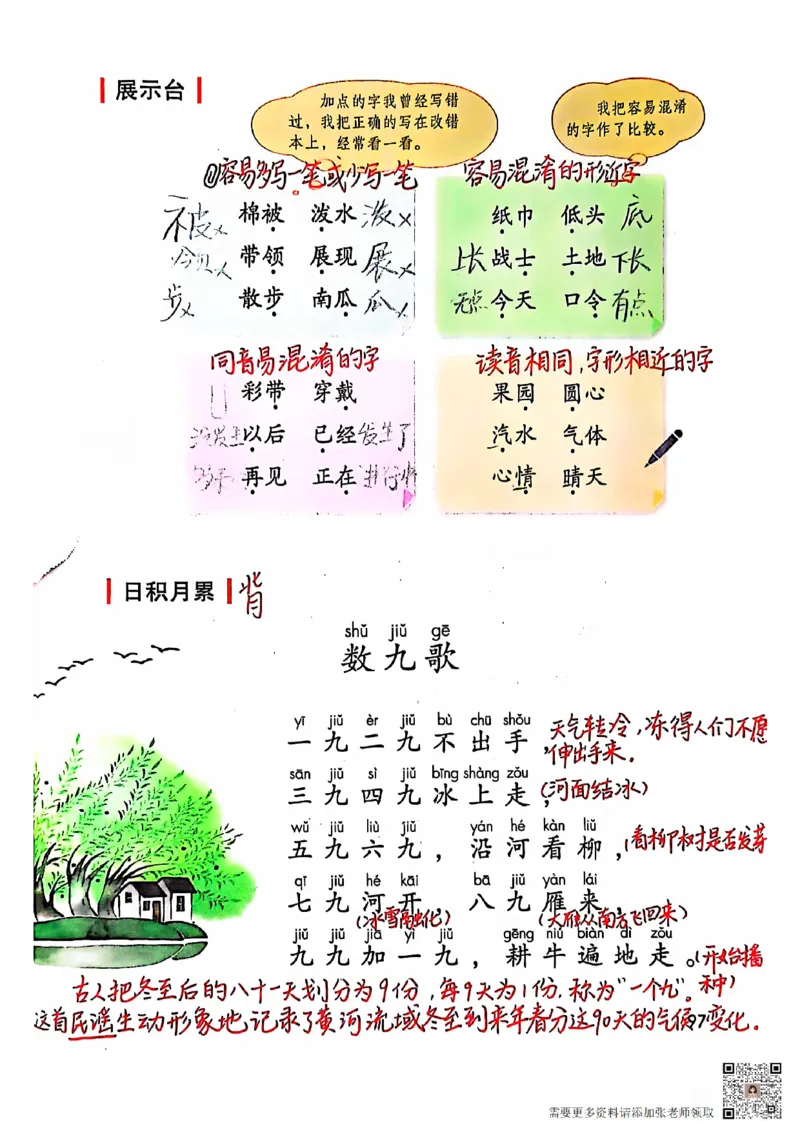 展示台
加点的字我曾经写错
过，我把正确的写在改错
本上，经常看一看。
我把容易混淆
的字作了比较。
①容易多写一笔或少写一笔
容易混淆的形近字
棉被 泼水
带领 展现
散步 南瓜
纸巾 低头 底
上长 战士 土地 下长
无点 今天 口令 有点
同音易混淆的字
彩带 穿戴
没发生 以后 已经 发生了
再见 正在
读音相同，字形相近的字
果园 圆心
汽水 气体
心情 晴天
日积月累 背
shǔ jiǔ gē
数九歌
yī jiǔ èr jiǔ bù chū shǒu
一九二九不出手，
天气转冷，冻得人们不愿
伸出手来。
sān jiǔ sì jiǔ bīng shàng zǒu
三九四九冰上走，(河面结冰)
wǔ jiǔ liù jiǔ yán hé kàn liǔ
五九六九，沿河看柳，(看柳树是否发芽
qī jiǔ hé kāi bā jiǔ yàn lái
七九河开，八九雁来，
(冰雪融化) (大雁从南方飞回来)
jiǔ jiǔ jiā yì jiǔ gēng niú biàn dì zǒu
九九加一九，耕牛遍地走。(开始播
种)
古人把冬至后的八十一天划分为9份，每9天为1份，称为"一个九"。
这首民谣生动形象地记录了黄河流域冬至到来年春分这90天的气候变化。
需要更多资料请添加张老师领取